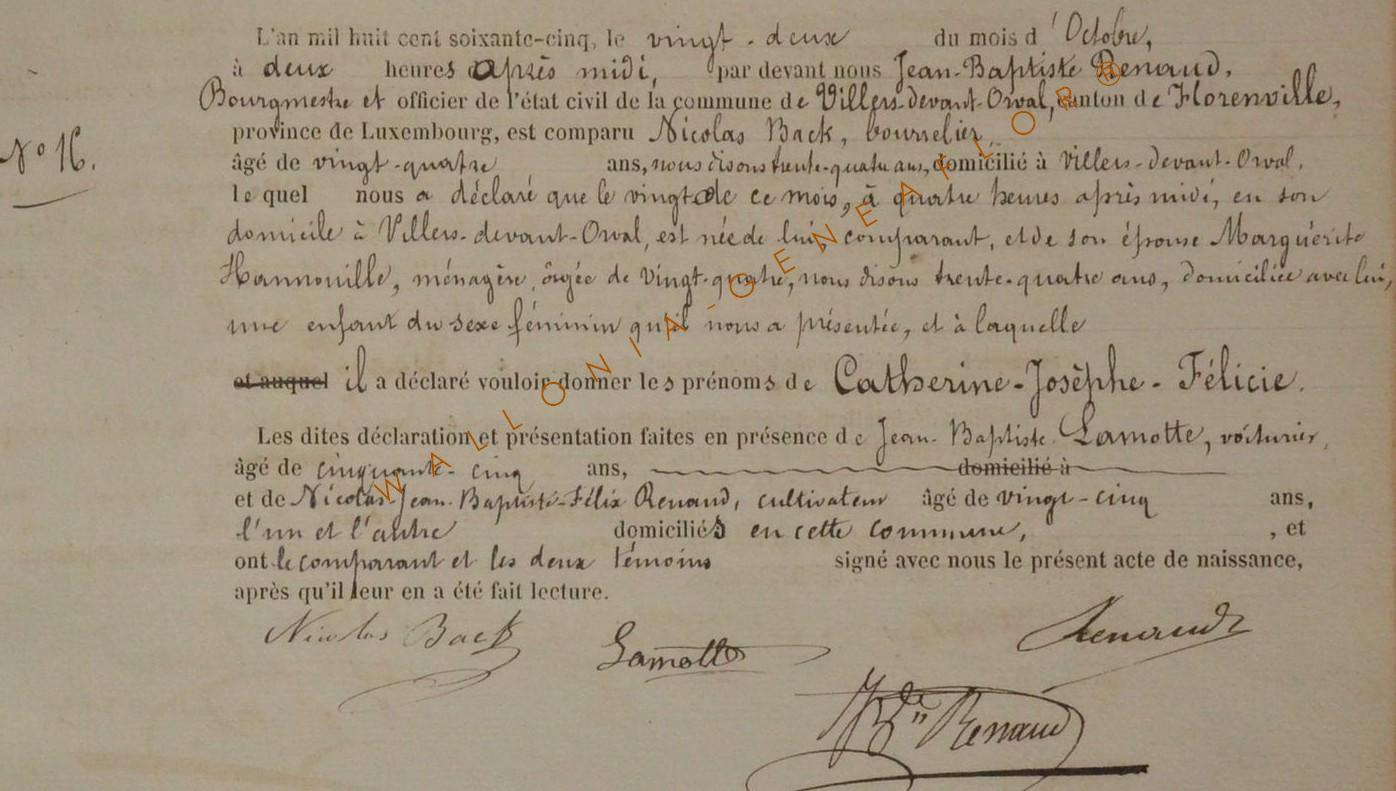 L'an mil huit cent soixante-cinq, le vingt-deux du mois d'Octobre,
à deux heures après midi, par devant nous Jean-Baptiste Renaud,
Bourgmestre et officier de l'état civil de la commune de Villers-devant-Orval, canton de Florenville,
province de Luxembourg, est comparu Nicolas Back, bourrelier,
N° 16.
âgé de vingt-quatre ans, nous disons trente-quatre ans, domicilié à Villers-devant-Orval,
le quel nous a déclaré que le vingt de ce mois, à quatre heures après midi, en son
domicile à Villers-devant-Orval, est née de lui, comparant, et de son épouse Marguérite
Hannouille, ménagère, âgée de vingt-quatre, nous disons trente-quatre ans, domiciliée avec lui,
une enfant du sexe féminin qu'il nous a présentée, et à laquelle
et auquel il a déclaré vouloir donner les prénoms de Catherine-Josèphe-Félicie.
Les dites déclaration et présentation faites en présence de Jean-Baptiste Lamotte, voiturier,
âgé de cinquante-cinq ans, domicilié à
et de Nicolas-Jean-Baptiste-Félix Renaud, cultivateur âgé de vingt-cinq ans,
l'un et l'autre domiciliés en cette commune, , et
ont le comparant et les deux témoins signé avec nous le présent acte de naissance,
après qu'il leur en a été fait lecture.
Nicolas Back Lamotte Renaud
Renaud
WALLONIA-GENEAFLOR®